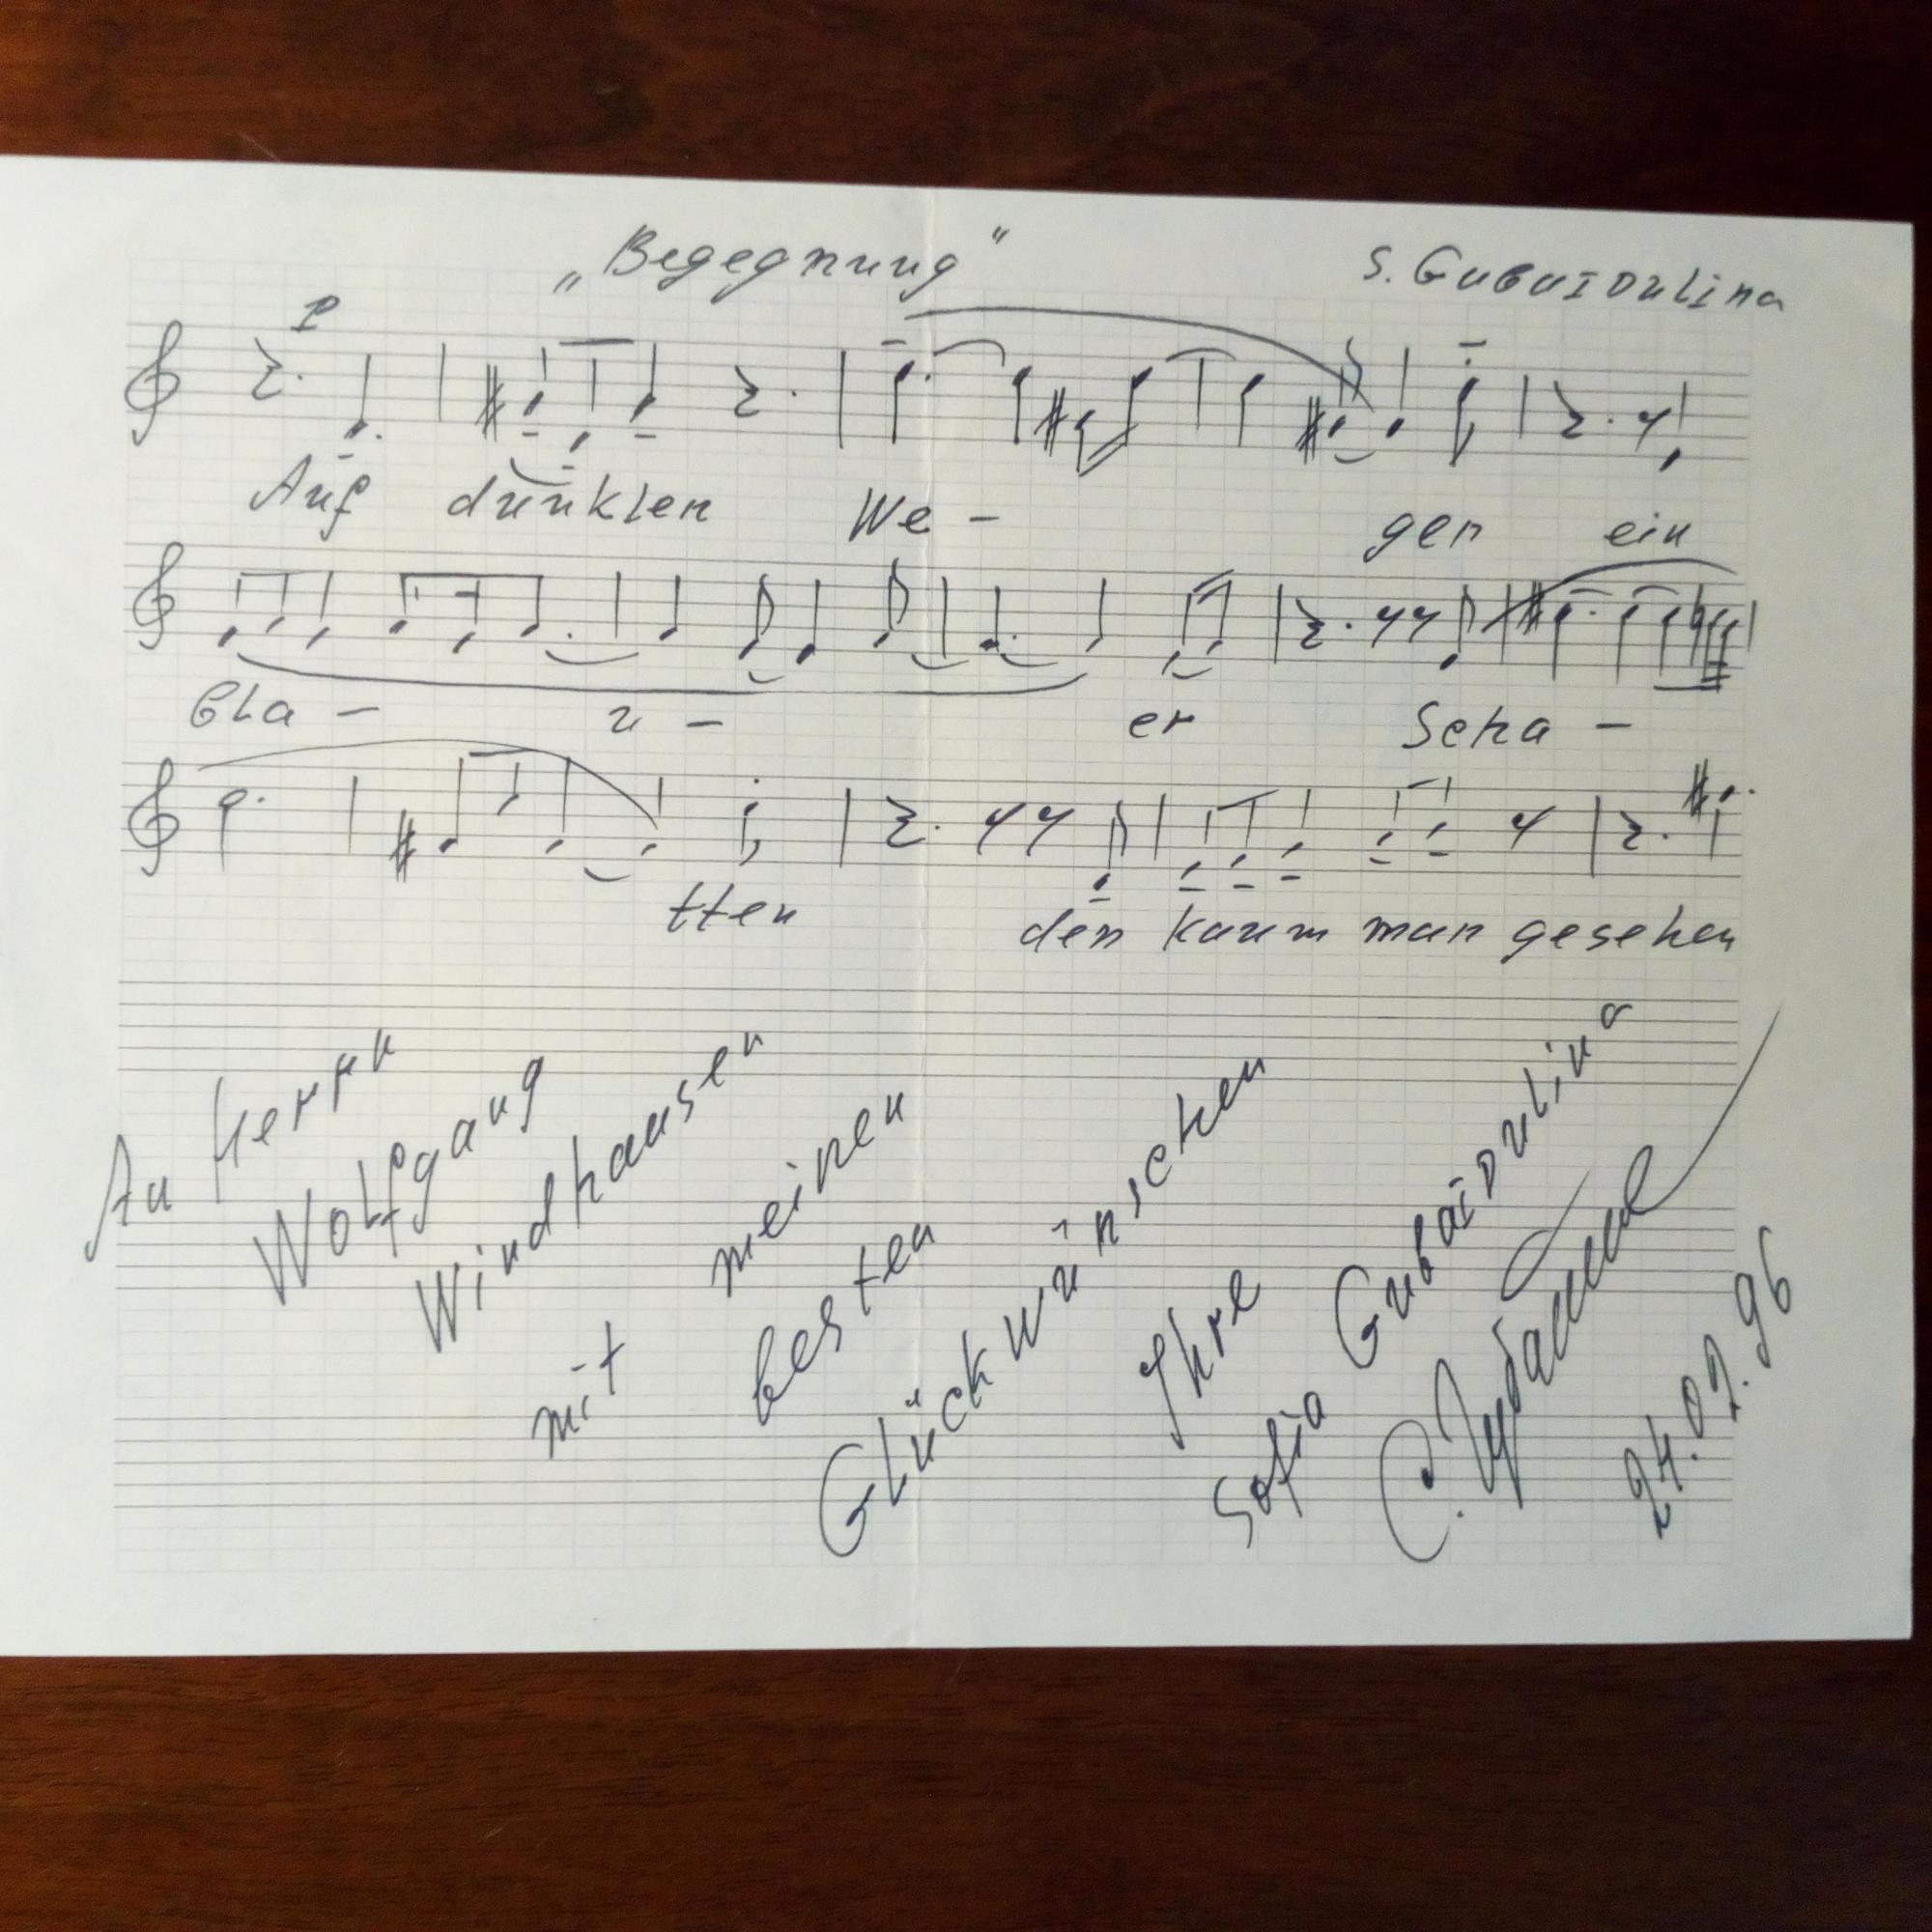 „Begegnung“
S. Gubaidulina
p
Auf dunklen We - gen ein
bla - u - er Scha -
tten den kaum man gesehen
An Herrn
Wolfgang
Windhausen
mit meinen
besten
Glückwünschen
Ihre
Sofia Gubaidulina
С. Губайдул
24.02.96